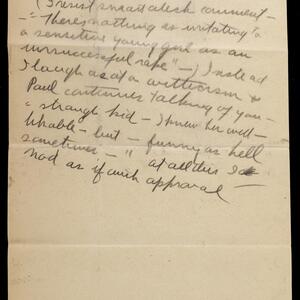 (I resist smart aleck comment –
– "There's nothing as irritating to
a sensitive young girl as an
unsuccessful rape" –) Instead
I laugh as at a witticism &
Paul continues talking of you –
"strange kid – I know her well –
likable – but – funny as hell
sometimes – " at all this I
nod as if with approval